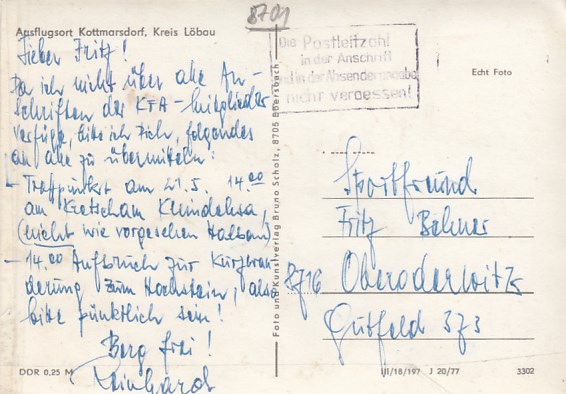 8701
Ausflugsort Kottmarsdorf, Kreis Löbau
Lieber Fritz!
Da ich nicht über alle An-
schriften der KFA-Mitglieder
verfüge, bitte ich Dich, folgendes
an alle zu übermitteln:
- Treffpunkt am 21.5. 14.00
am Kretscham Kleindehsa,
(nicht wie vorgesehen Halbau)
- 14.00 Aufbruch zur Kurzwan
derung zum Hochstein, also
bitte pünktlich sein!
Berg frei!
Reinhardt
DDR 0,25 M
Foto und Kunstverlag Bruno Scholz, 8705 Ebersbach
Die Postleitzahl
in der Anschrift
und in der Absenderangabe
nicht vergessen!
Echt Foto
Sportfreund
Fritz Behner
8716 Oberoderwitz
Gutfeld 373
III/18/197 J 20/77 3302